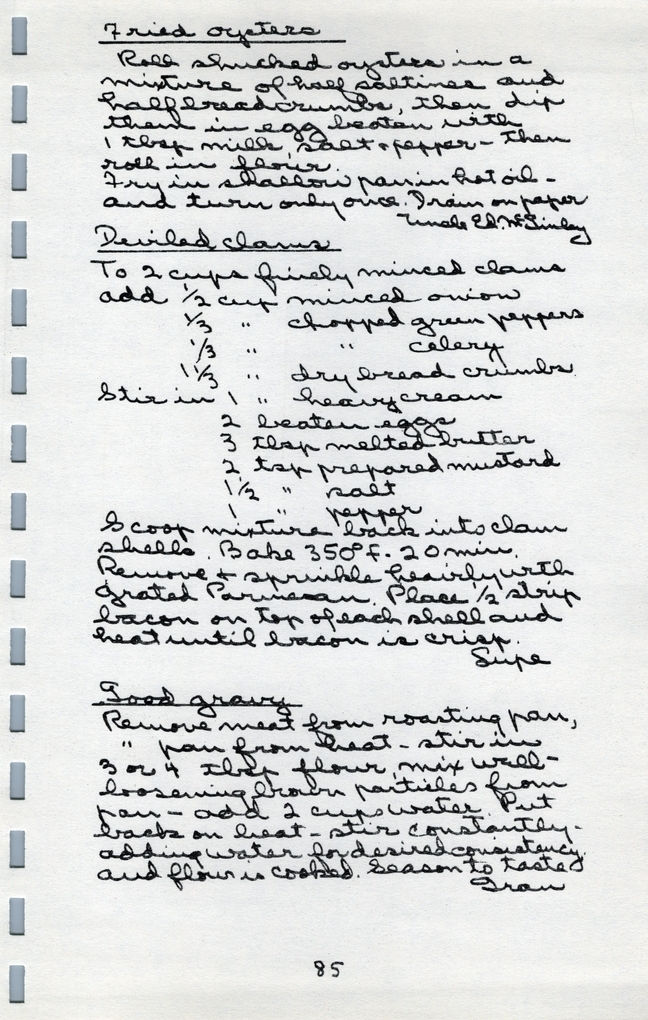 Fried oysters
Roll shucked oysters in a
mixture of half saltines and
half breadcrumbs, then dip
them in egg beaten with
1 tbsp milk, salt + pepper - then
roll in flour.
Fry in shallow pan in hot oil -
and turn only once. Drain on paper
Uncle Ed. McGinley
Deviled clams
To 2 cups finely minced clams
add 1/2 cup minced onion
1/3 " chopped green peppers
1/3 " " celery
1 1/3 " dry bread crumbs.
Stir in 1 " heavy cream
2 beaten eggs
3 tbsp melted butter
2 tsp prepared mustard
1 1/2 " salt
1 " pepper
Scoop mixture back into clam
shells. Bake 350° f. 20 min.
Remove + sprinkle heavily with
grated Parmesan. Place 1/2 strip
bacon on top of each shell and
heat until bacon is crisp.
Supe
Good gravy
Remove meat from roasting pan,
" pan from heat - stir in
3 or 4 tbsp flour, mix well -
loosening brown particles from
pan - add 2 cups water. Put
back on heat - stir constantly -
adding water for desired consistency
and flour is cooked. Season to taste
Gran
85